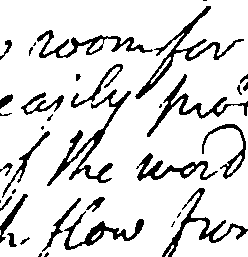 room for
easily
of the word
flow from